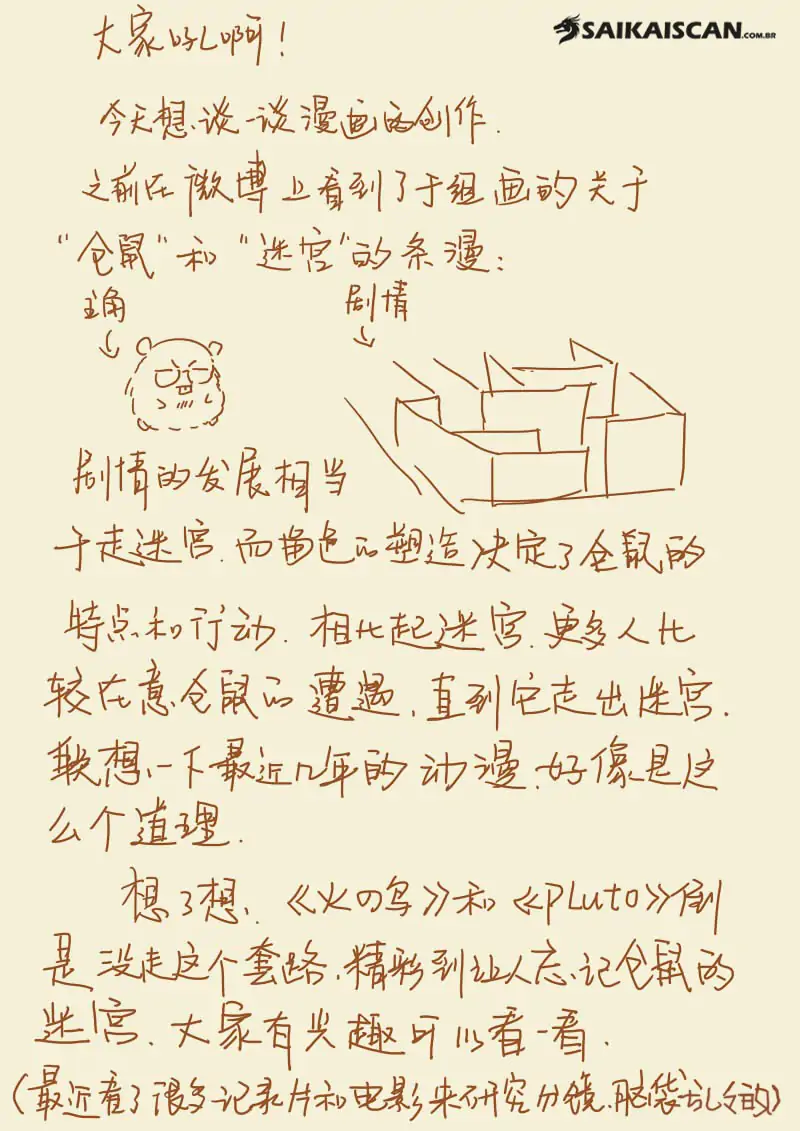 SAIKAISCAN.COM.BR
大家好啊!
今天想谈一谈漫画的创作.
之前在微博上看到了于组画的关于
“仓鼠”和“迷宫”的条漫:
主角
剧情
剧情的发展相当
于走迷宫.而角色的塑造决定了仓鼠的
特点和行动.相比起迷宫.更多人比
较在意仓鼠的遭遇,直到它走出迷宫.
联想一下最近几年的动漫.好像是这
么个道理.
想了想、《火の鸟》和《PLuto》倒
是没走这个套路.精彩到让人忘记仓鼠的
迷宫.大家有兴趣可以看一看.
(最近看了很多记录片和电影来研究分镜.脑袋乱乱的)